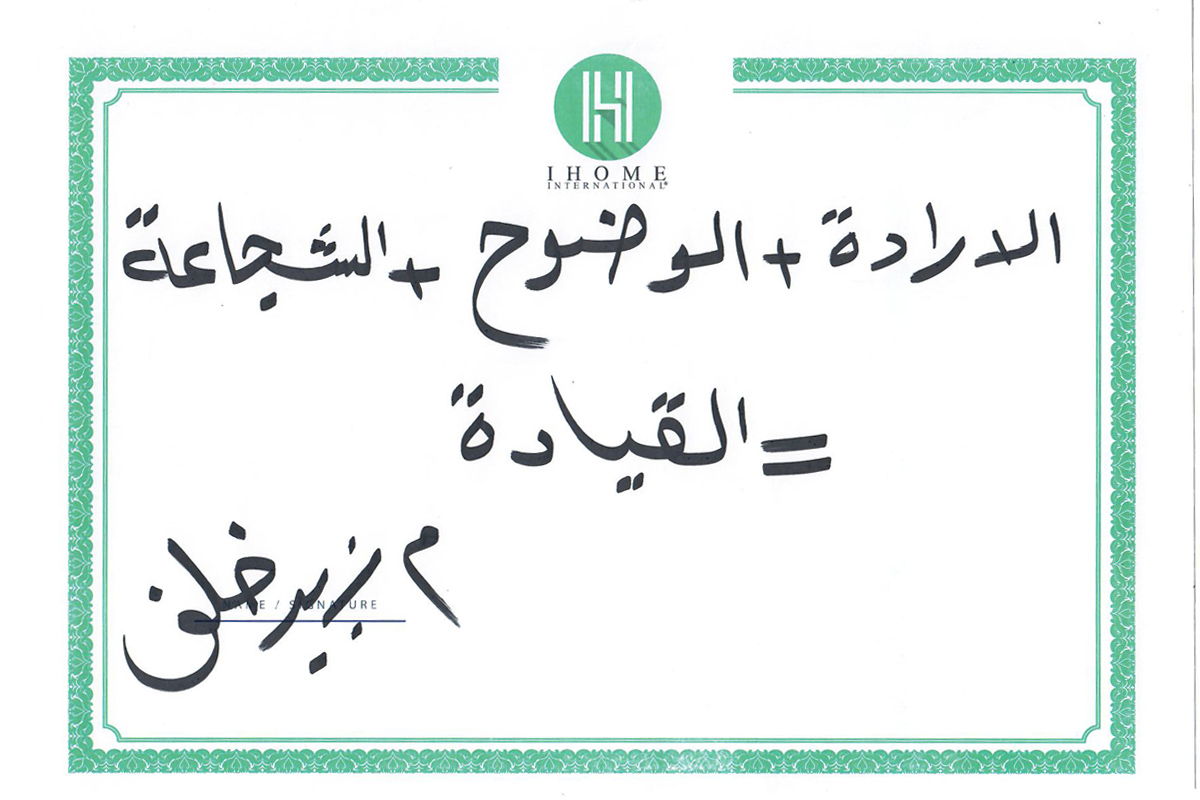 IHOME
INTERNATIONAL®
الارادة + الوضوح + الشجاعة
= القيادة
م زيد خلف
NAME / SIGNATURE